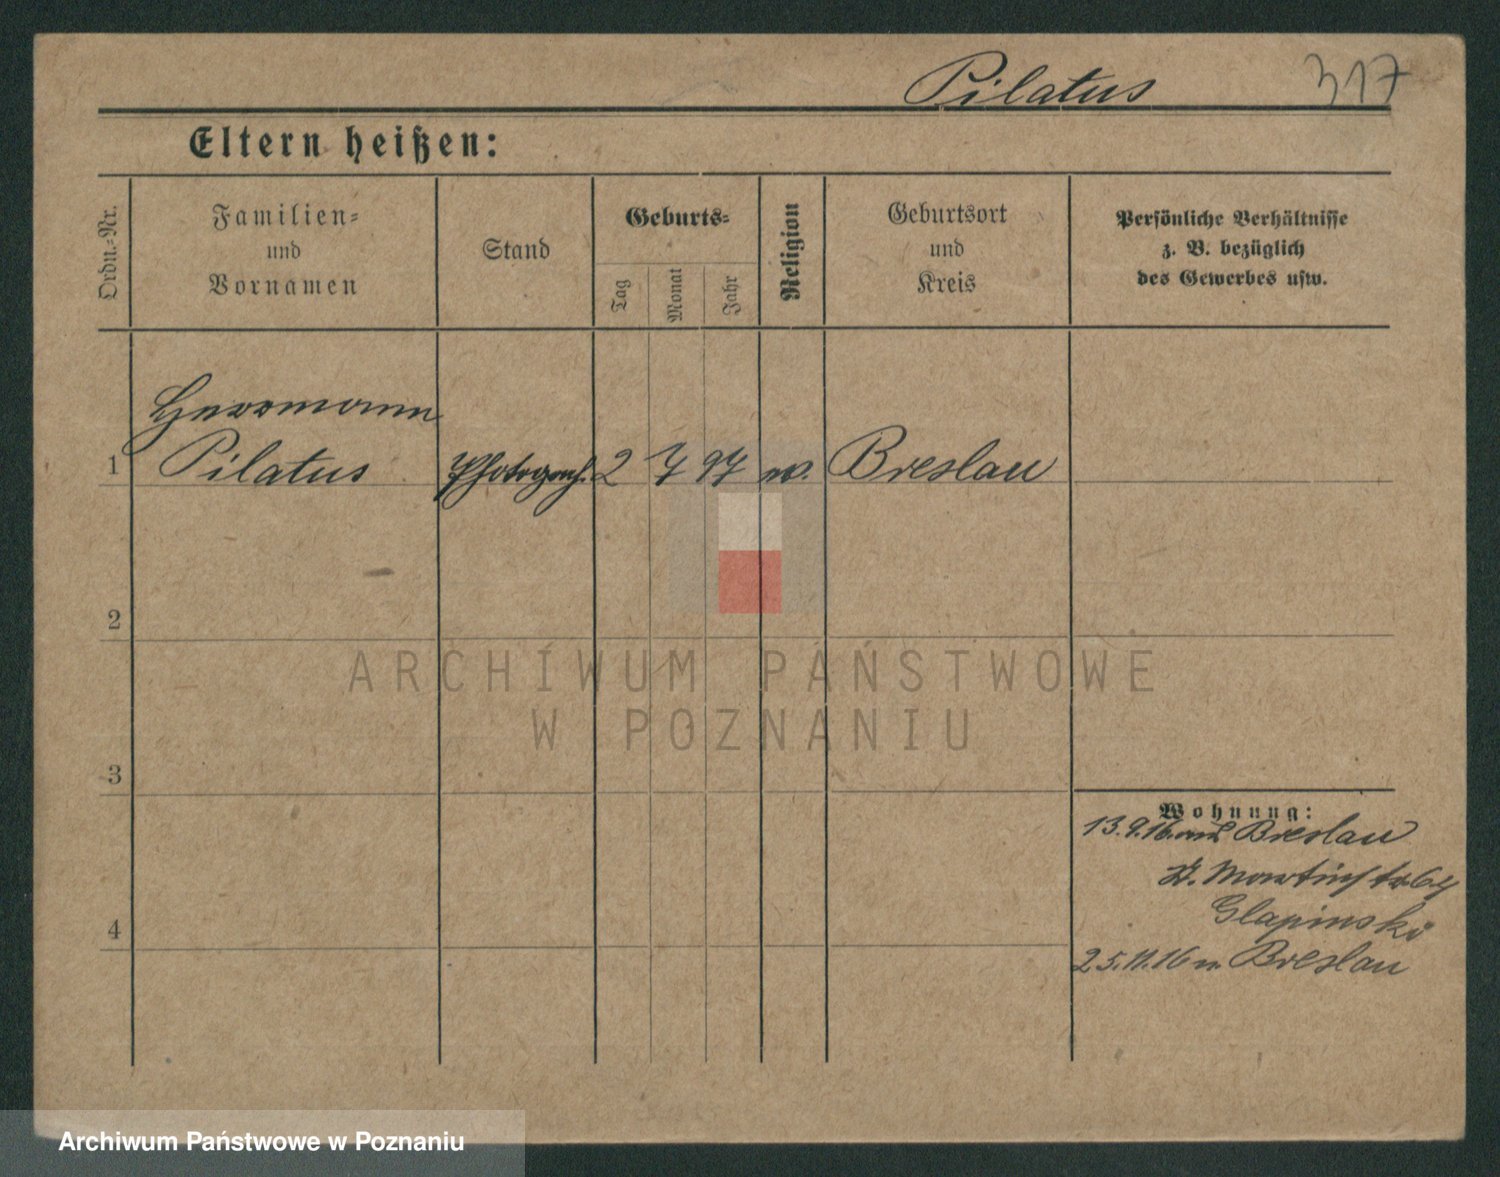 Pilatus 317
Eltern heißen:
Ordn.-Nr.
Familien-
und
Vornamen
Stand
Geburts-
Tag
Monat
Jahr
Religion
Geburtsort
und
Kreis
Persönliche Verhältnisse
z. B. bezüglich
des Gewerbes usw.
Herrmann
1 Pilatus Photograph. 2 7 97 Breslau
2
ARCHIWUM PAŃSTWOWE
W POZNANIU
3
Wohnung:
13.9.16. aus Breslau
St. Martinstr 64
Glapinski
4
25.11.16 n. Breslau
Archiwum Państwowe w Poznaniu